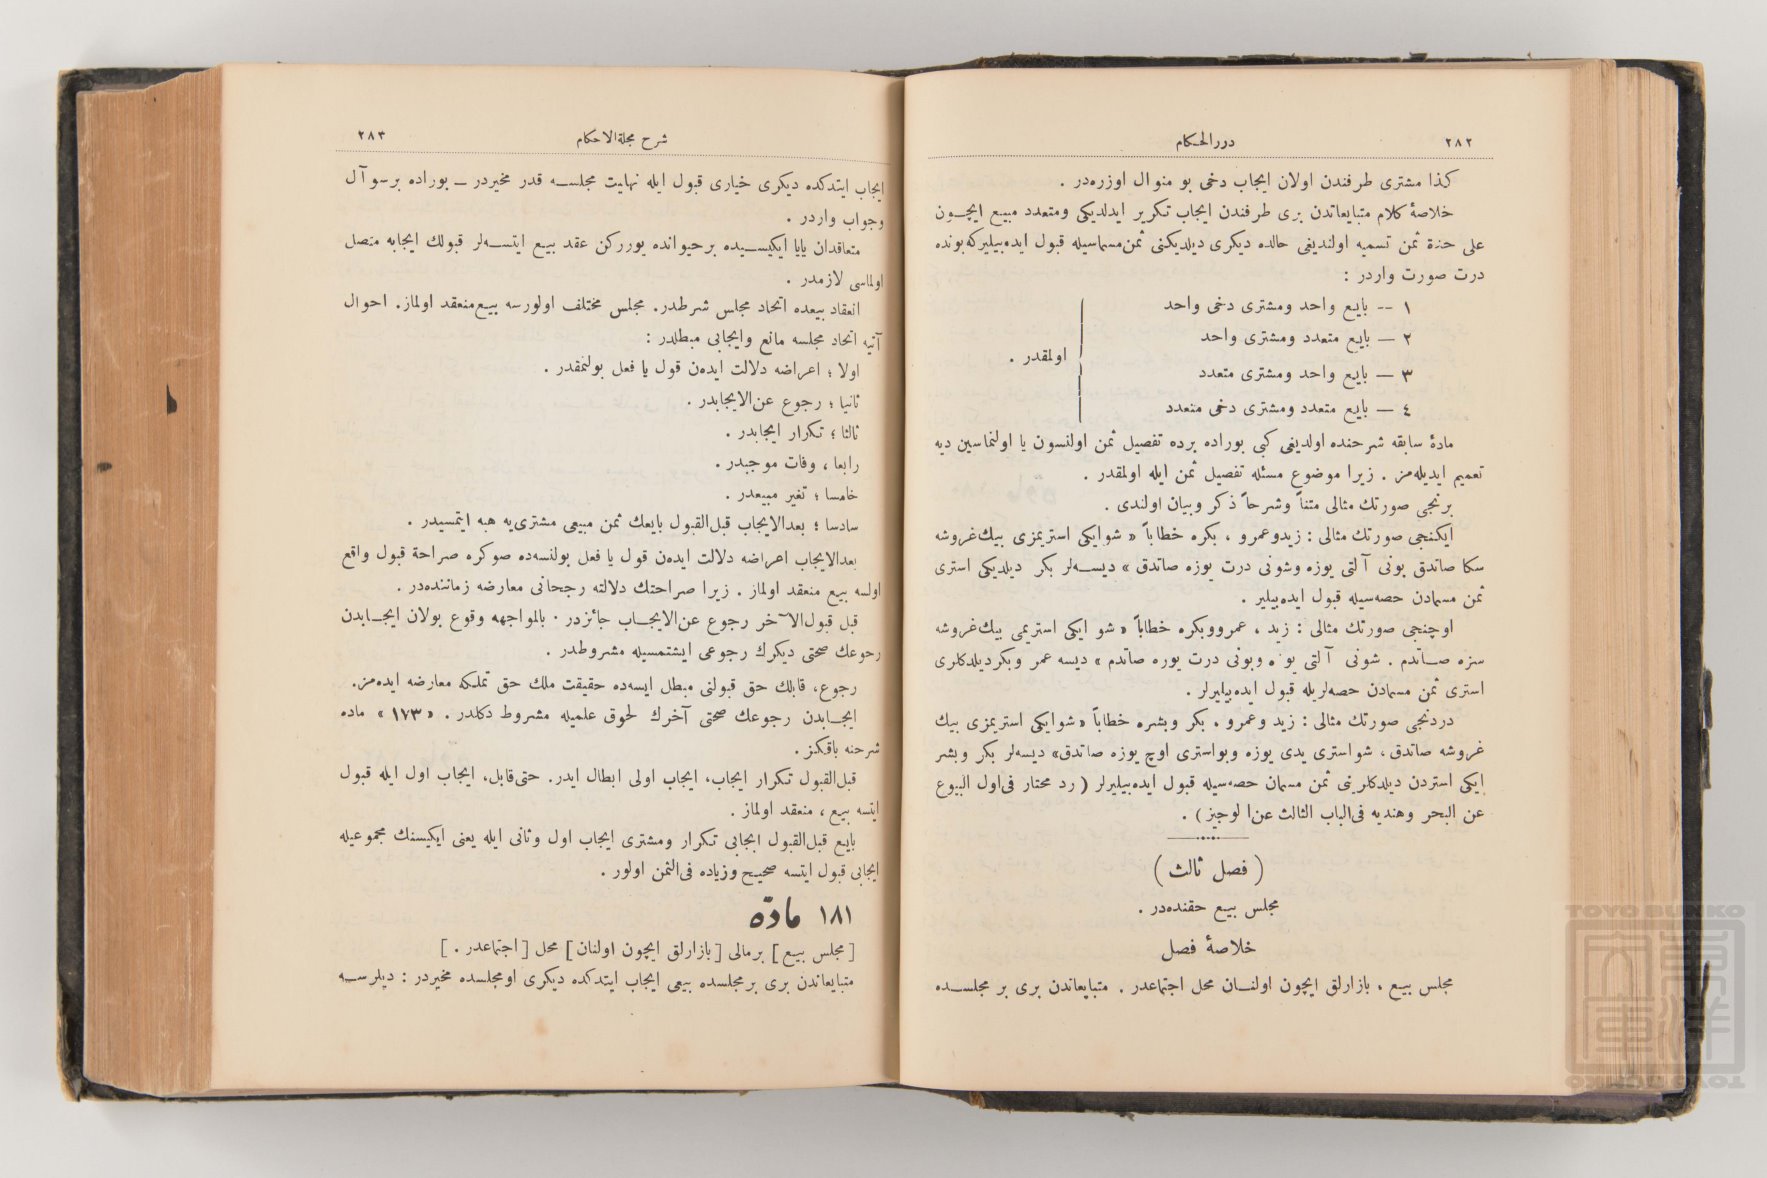 ٢٨٢
دررالحكام
كذا مشترى طرفندن اولان ايجاب دخى بو منوال اوزره‌در .
خلاصهٔ كلام متبايعاتدن برى طرفندن ايجاب تكرير ايدلديكى ومتعدد مبيع ايچـون
على حدة ثمن تسميه اولنديغى حالده ديكرى ديلديكنى ثمن مسماسيله قبول ايده‌بيليركه بونده
درت صورت واردر :
١ — بايع واحد ومشترى دخى واحد
٢ — بايع متعدد ومشترى واحد
٣ — بايع واحد ومشترى متعدد
٤ — بايع متعدد ومشترى دخى متعدد
اولمقدر .
مادهٔ سابقه شرحنده اولديغى كبى بوراده برده تفصيل ثمن اولنسون يا اولنماسين ديه
تعميم ايديله‌مز . زيرا موضوع مسئله تفصيل ثمن ايله اولمقدر .
برنجى صورتك مثالى متناً وشرحاً ذكر وبيان اولندى .
ايكنجى صورتك مثالى : زيدوعمرو ، بكره خطاباً « شوايكى استريمزى بيك‌غروشه
سكا صاتدق بونى آلتى يوزه وشونى درت يوزه صاتدق » ديسـه‌لر بكر ديلديكى استرى
ثمن مسمادن حصه‌سيله قبول ايده‌بيلير .
اوچنجى صورتك مثالى : زيد ، عمرووبكره خطاباً « شو ايكى استريمى بيك‌غروشه
سزه صـاتدم . شونى آلتى يوزه وبونى درت يوزه صاتدم » ديسه عمر وبكرديلدكلرى
استرى ثمن مسمادن حصه‌لريله قبول ايده‌بيليرلر .
دردنجى صورتك مثالى : زيد وعمرو ، بكر وبشره خطاباً « شوايكى استريمزى بيك
غروشه صاتدق ، شواسترى يدى يوزه وبواسترى اوچ يوزه صاتدق» ديسه‌لر بكر وبشر
ايكى استردن ديلدكلرينى ثمن مسمان حصه‌سيله قبول ايده‌بيليرلر ( رد محتار فى‌اول البيوع
عن البحر وهنديه فى‌الباب الثالث عن‌ا لوجيز ) .
( فصل ثالث )
مجلس بيع حقنده‌در .
خلاصهٔ فصل
مجلس بيع ، بازارلق ايچون اولنـان محل اجتماعدر . متبايعاتدن برى بر مجلسـده
شرح مجلةالاحكام
٢٨٣
ايجاب ايتدكده ديكرى خيارى قبول ايله نهايت مجلسـه قدر مخيردر — بوراده برسوآل
وجواب واردر .
متعاقدان يايا ايكيسـيده برحيوانده يورركن عقد بيع ايتسـه‌لر قبولك ايجابه متصل
اولماسى لازمدر .
انعقاد بيعده اتحاد مجلس شرطدر. مجلس مختلف اولورسه بيع‌منعقد اولماز. احوال
آتيه اتحاد مجلسه مانع وايجابى مبطلدر :
اولا ؛ اعراضه دلالت ايده‌ن قول يا فعل بولنمقدر .
ثانيا ؛ رجوع عن‌الايجابدر .
ثالثا ؛ تكرار ايجابدر .
رابعا ، وفات موجبدر .
خامسا ؛ تغير مبيعدر .
سادسا ؛ بعدالايجاب قبل‌القبول بايعك ثمن مبيعى مشترى‌يه هبه ايتمسيدر .
بعدالايجاب اعراضه دلالت ايده‌ن قول يا فعل بولنسه‌ده صوكره صراحة قبول واقع
اولسه بيع منعقد اولماز . زيرا صراحتك دلالته رجحانى معارضه زماننده‌در .
قبل قبول‌الآخر رجوع عن‌الايجـاب جائزدر . بالمواجهه وقوع بولان ايجـابدن
رجوعك صحتى ديكرك رجوعى ايشتمسيله مشروطدر .
رجوع، قابلك حق قبولنى مبطل ايسه‌ده حقيقت ملك حق تملكه معارضه ايده‌مز.
ايجـابدن رجوعك صحتى آخرك لحوق علميله مشروط دكلدر . «١٧٣» ماده
شرحنه باقكز .
قبل‌القبول تكرار ايجاب، ايجاب اولى ابطال ايدر. حتى‌قابل، ايجاب اول ايله قبول
ايتسه بيع ، منعقد اولماز .
بايع قبل‌القبول ايجابى تكرار ومشترى ايجاب اول وثانى ايله يعنى ايكيسنك مجموعيله
ايجابى قبول ايتسه صحيح وزياده فى‌الثمن اولور .
١٨١ مادّه
[ مجلس بيع ] برمالى [ بازارلق ايچون اولنان ] محل [ اجتماعدر . ]
متبايعاتدن برى برمجلسده بيعى ايجاب ايتدكده ديكرى اومجلسده مخيردر : ديلرسـه
TOYO BUNKO
東洋文庫
TOYO BUNKO